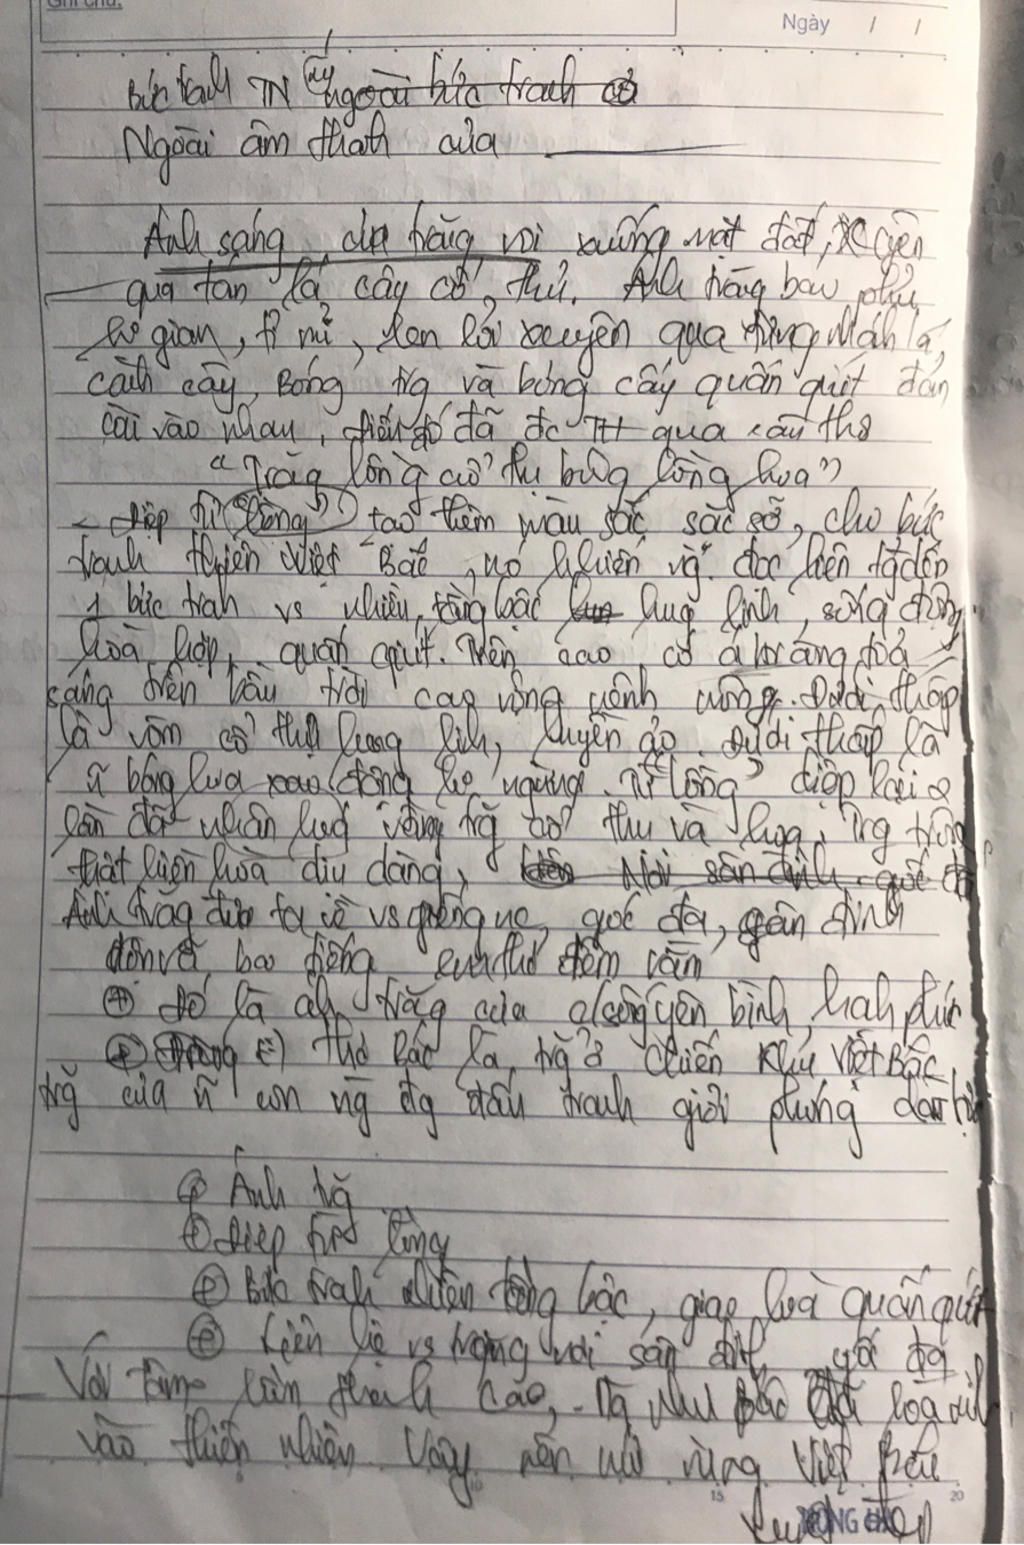 Ghi chú:
Ngày / /
Bức tranh TN ngoài bức tranh
Ngoài âm thanh của
Ánh sáng của trăng rọi xuống mặt đất, xuyên
qua tán lá cây cổ thụ. Ánh trăng bao phủ
gian, tỉ mỉ, len lỏi xuyên qua từng nhánh lá,
cành cây, Bóng trg và bóng cây quấn quýt đan
cài vào nhau, điều đó đã đc TH qua câu thơ
"Trăng lồng cổ thụ bóng lồng hoa"
- Điệp từ "lồng" tạo thêm màu sắc sặc sỡ, cho bức
tranh thiên Việt Bắc, nó khiến đọc liên tg đến
1 bức tranh vs nhiều tầng bậc lung linh, sống động,
hòa hợp, quấn quýt. Trên cao, có trăng toả
sáng trên bầu trời cao rộng mênh mông. Dưới thấp
là vòm cổ thụ lung linh, huyền ảo. Dưới thấp là
bóng hoa xao động ngừng. Từ lồng" điệp lại 2
lần đã nhân hoá vầng trg cổ thụ và hoa, trg
thật hiền hòa dịu dàng, Nơi sân đình
Ánh trăng đưa ta về vs giếng nc, gốc đa, sân đình
bao đêm rằm
đó là ánh trăng của csống yên bình, hạnh phúc
thơ Bác là trg ở chiến khu Việt Bắc,
trg của con ng đg đấu tranh giải phóng
Ánh trg
Điệp từ lồng
Bức tranh nhiều tầng bậc, giao hoà quấn quýt
Liên hệ vs sân đình, gốc đa
Với tâm hồn thanh cao, Bác đã
vào thiên nhiên. Vậy nên núi rừng Việt Bắc
15
20